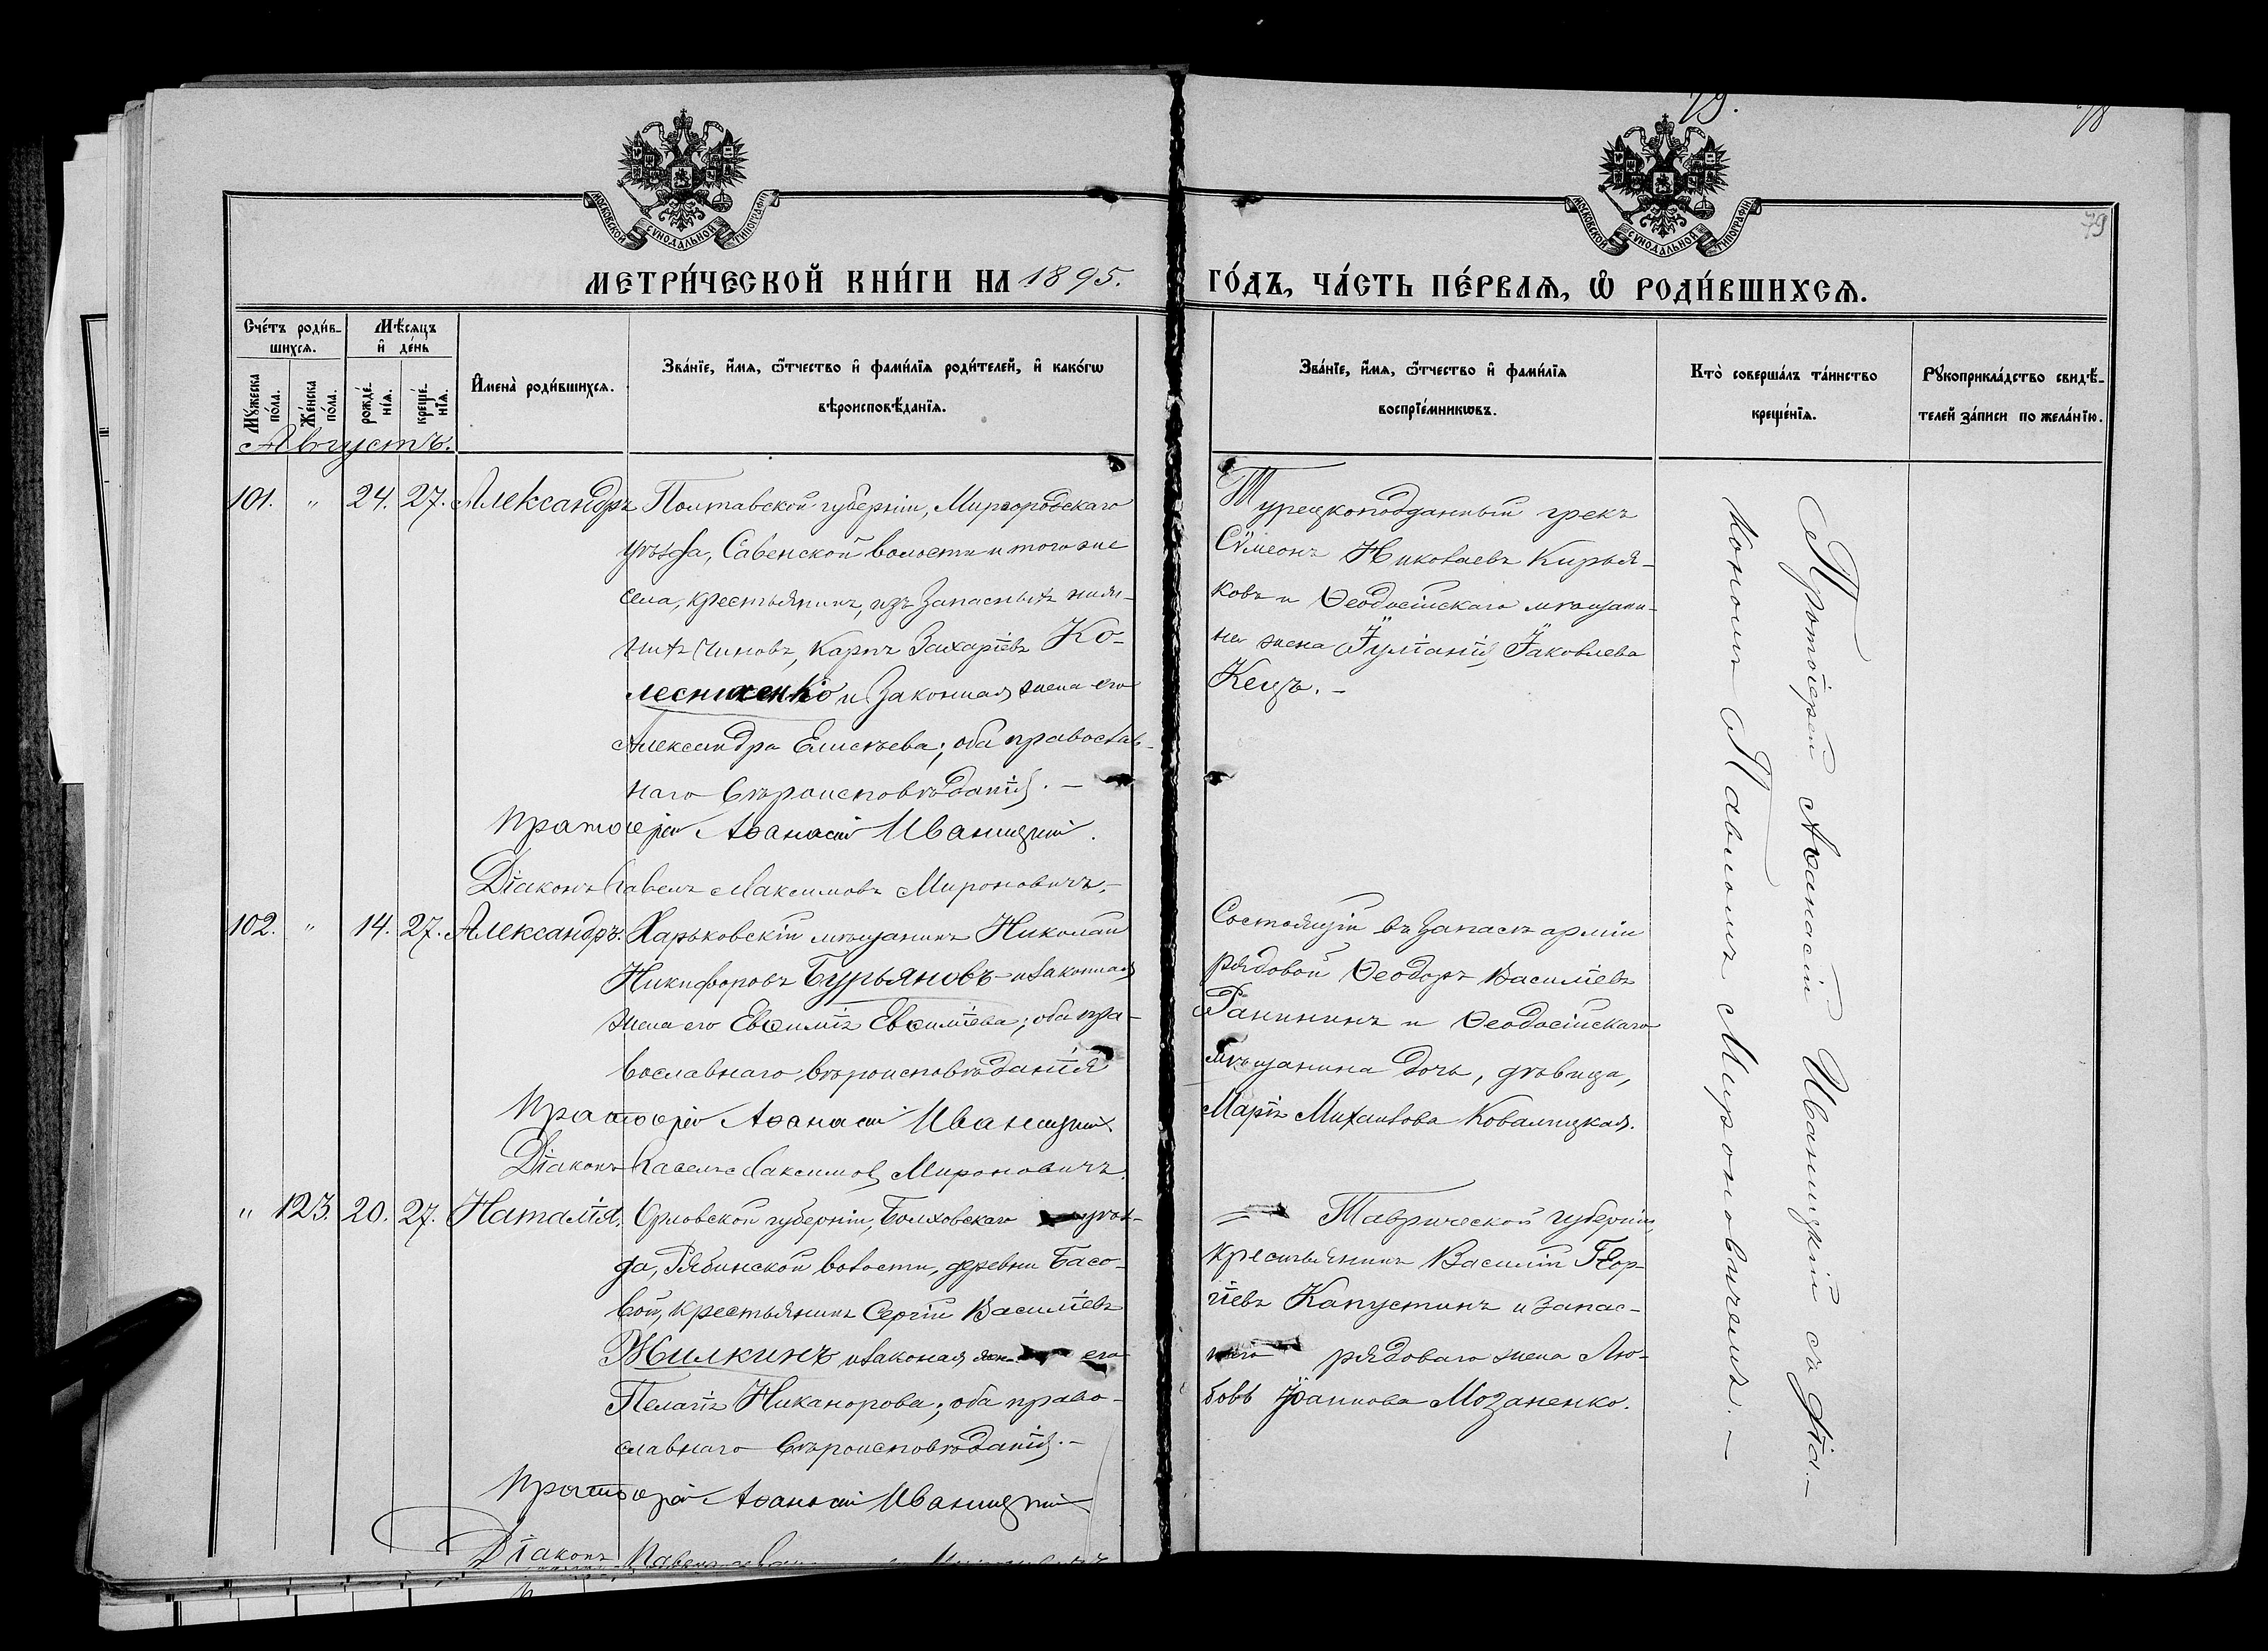 79.
79
МОСКОВСКОЙ СѴНОДАЛЬНОЙ ТИПОГРАФІИ
МОСКОВСКОЙ СѴНОДАЛЬНОЙ ТИПОГРАФІИ
МЕТРИ́ЧЕСКОЙ КНИ́ГИ НА 1895. ГО́ДЪ, ЧА́СТЬ ПЕ́РВАѦ, Ѡ҆ РОДИ́ВШИХСѦ.
Сче́тъ роди́в-
шихсѧ.
Мѣ́сѧцъ
и҆ де́нь
Мꙋ́жеска по́ла.
Же́нска по́ла.
рожде́нїѧ.
креще́нїѧ.
И҆мена̀ роди́вшихсѧ.
Зва́нїе, и҆́мѧ, ѻ҆́тчество и҆ фами́лїѧ роди́телей, и҆ како́гѡ
вѣроисповѣ́данїѧ.
Зва́нїе, и҆́мѧ, ѻ҆́тчество и҆ фами́лїѧ
воспрїе́мникѡвъ.
Кто̀ соверша́лъ та́инство
креще́нїѧ.
Рꙋкоприкла́дство свидѣ́-
телей за́писи по жела́нїю.
Августъ.
101. " 24. 27. Александръ Полтавской губерніи, Миргородскаго
уѣзда, Савенской волости и того же
села, крестьянинъ, изъ запасныхъ ниж-
нихъ чиновъ, Карпъ Захаріевъ Ко-
лесниченко и законная жена его
Александра Елисѣева; оба православ-
наго вѣроисповѣданія. –
Протоіерей Аѳанасій Иваницкій.
Діаконъ Павелъ Максимовъ Мироновичъ. –
Турецкоподданный грекъ
Сѵмеонъ Николаевъ Кирья-
ковъ и Ѳеодосійскаго мѣщани-
на жена Іуліанія Іаковлева
Кецъ. –
102. " 14. 27. Александръ. Харьковскій мѣщанинъ Николай
Никифоровъ Бурьяновъ и законная
жена его Евѳимія Евѳиміева; оба пра-
вославнаго вѣроисповѣданія
Протоіерей Аѳанасій Иваницкій.
Діаконъ Павелъ Максимовъ Мироновичъ.
Состоящій въ запасѣ арміи
рядовой Ѳеодоръ Василіевъ
Ранининъ и Ѳеодосійскаго
мѣщанина дочь, дѣвица,
Марія Михаилова Ковалицкая.
" 123. 20. 27. Наталія. Орловской губерніи, Болховскаго уѣз-
да, Рябинской волости, деревни Басо-
вой, крестьянинъ Сергій Василіевъ
Жилкинъ и законая жена его
Пелагія Никанорова; оба право-
славнаго вѣроисповѣданія. –
Протоіерей Аѳанасій Иваницкій
Діаконъ Павелъ
Таврической губерніи,
крестьянинъ Василій Геор-
гіевъ Капустинъ и запас-
наго рядоваго жена Лю-
бовь Іоаннова Мозаненко.
Протоіерей Аѳанасій Иваницкій съ діа-
кономъ Павломъ Мироновичемъ. –